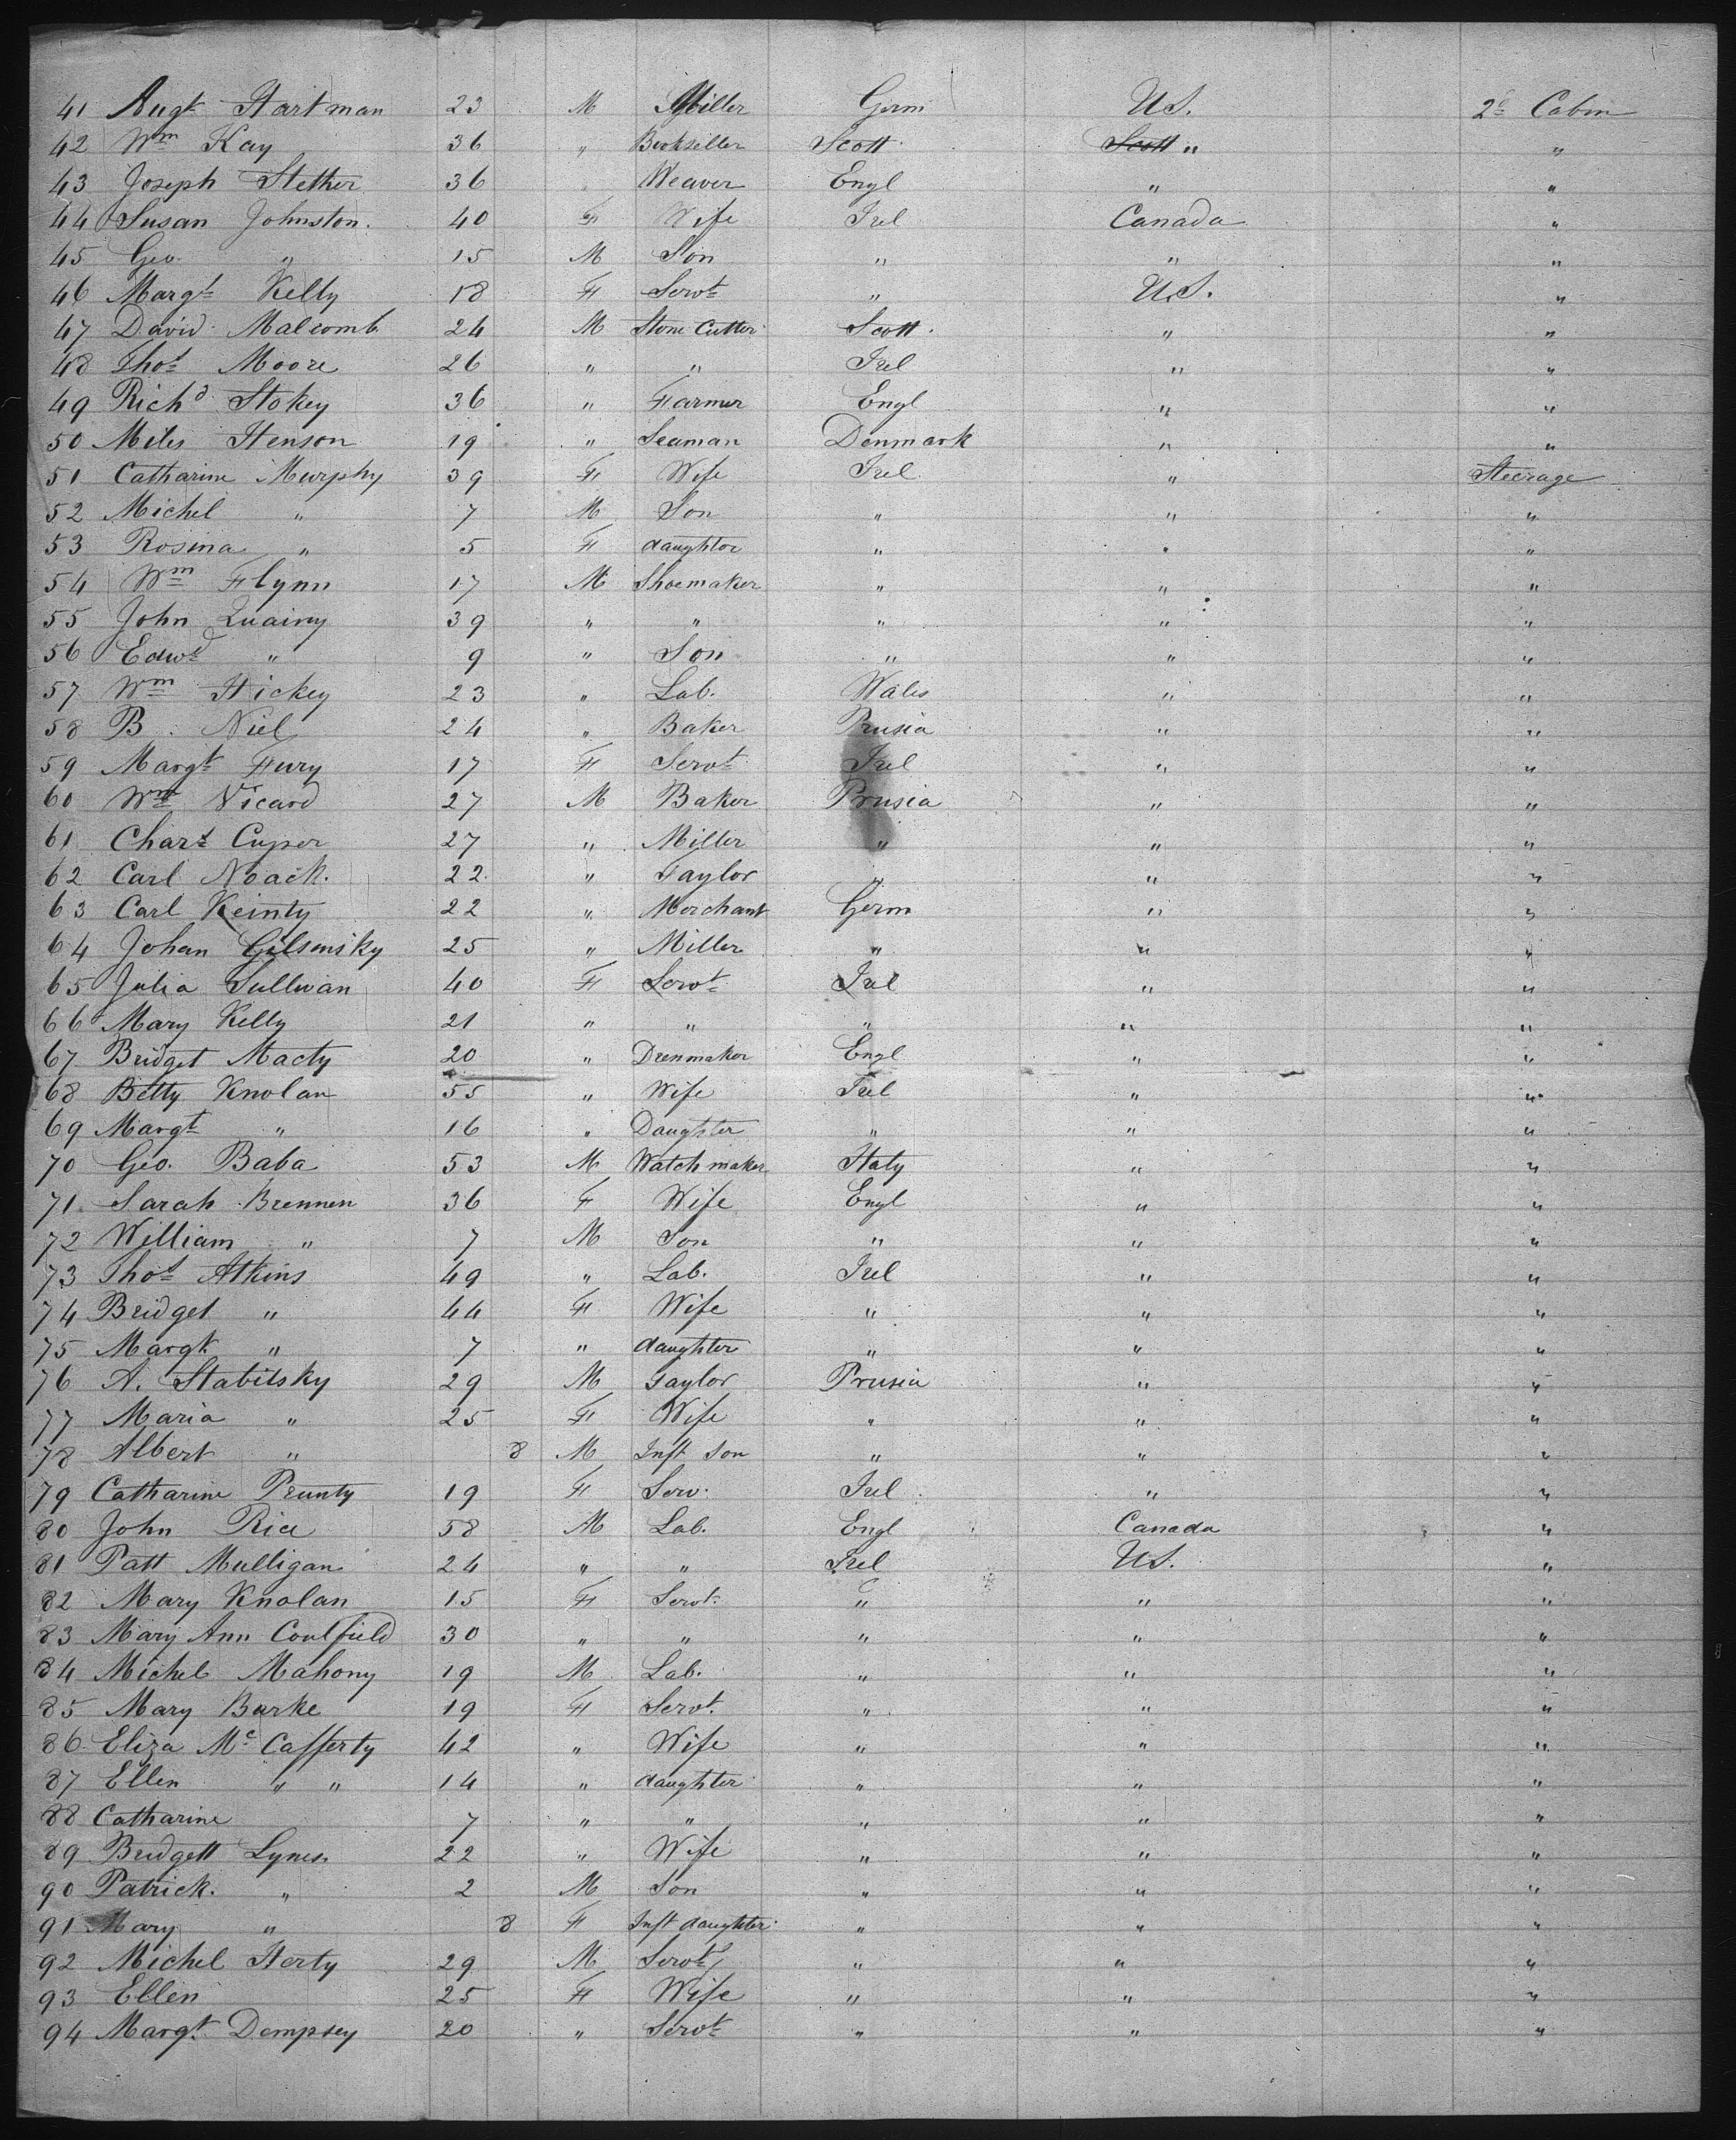 41 Augt Hartman 23 M Miller Germ U.S. 2d Cabin
42 Wm Kay 36 " Bookseller Scott Scott " "
43 Joseph Stether 36 Weaver Engl " "
44 Susan Johnston. 40 F Wife Irel Canada "
45 Geo. " 15 M Son " " "
46 Margt Kelly 18 F Servt " U.S. "
47 David Malcomb 24 M Stone Cutter Scott. " "
48 Thos Moore 26 " " Irel " "
49 Richd Stokey 36 " Farmer Engl " "
50 Miles Henson 19 " Seaman Denmark " "
51 Catharine Murphy 39 F Wife Irel " Steerage
52 Michel " 7 M Son " " "
53 Rosina " 5 F daughter " " "
54 Wm Flynn 17 M Shoemaker " " "
55 John Quainy 39 " " " " "
56 Edwd " 9 " Son " " "
57 Wm Hickey 23 " Lab. Wales " "
58 B. Niel 24 " Baker Prusia " "
59 Margt Fury 17 F Servt Irel " "
60 Wm Vicard 27 M Baker Prusia " "
61 Chars Cuper 27 " Miller " " "
62 Carl Noack. 22 " Taylor " " "
63 Carl Keinty 22 " Merchant Germ " "
64 Johan Gilsensky 25 " Miller " " "
65 Julia Sullivan 40 F Servt Irel " "
66 Mary Kelly 21 " " " " "
67 Bridget Macty 20 " Dresmaker Engl " "
68 Betty Knolan 55 " Wife Irel " "
69 Margt " 16 " Daugter " " "
70 Geo. Baba 53 M Watchmaker Italy " "
71 Sarah Brennen 36 F Wife Engl " "
72 William " 7 M Son " " "
73 Thos Atkins 49 " Lab. Irel " "
74 Bridget " 44 F Wife " " "
75 Margt " 7 " daughter " " "
76 A. Stabitsky 29 M Taylor Prusia " "
77 Maria " 25 F Wife " " "
78 Albert " 8 M Inft Son " " "
79 Catharine Prunty 19 F Serv. Irel " "
80 John Rice 58 M Lab. Engl Canada "
81 Patt Mulligan 24 " " Irel U.S. "
82 Mary Knolan 15 F Servt " " "
83 Mary Ann Coulfield 30 " " " " "
84 Michel Mahony 19 M Lab. " " "
85 Mary Burke 19 F Servt. " " "
86 Eliza Mc Cafferty 42 " Wife " " "
87 Ellen " " 14 " daughter " " "
88 Catharine 7 " " " " "
89 Bridgett Lynes 22 " Wife " " "
90 Patrick. " 2 M Son " " "
91 Mary " 8 F Inft daughter " " "
92 Michel Herty 29 M Servts " " "
93 Ellen 25 F Wife " " "
94 Margt Dempsey 20 " Servt " " "